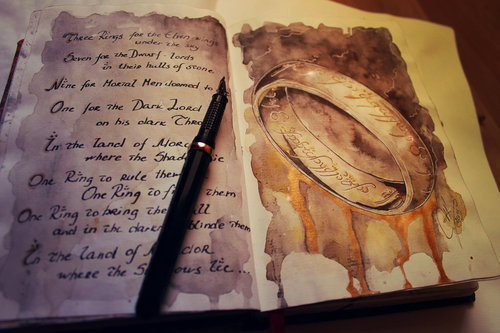 Three Rings for the Elven kings
under the sky
Seven for the Dwarf lords
in their halls of stone.
Nine for Mortal Men doomed to
One for the Dark Lord
on his dark Thro
In the land of Mor
where the Shad
One Ring to rule them
One Ring to fi them
One Ring to bring the all
and in the dark binde them
In the land of M DOR
where the S ows lie...